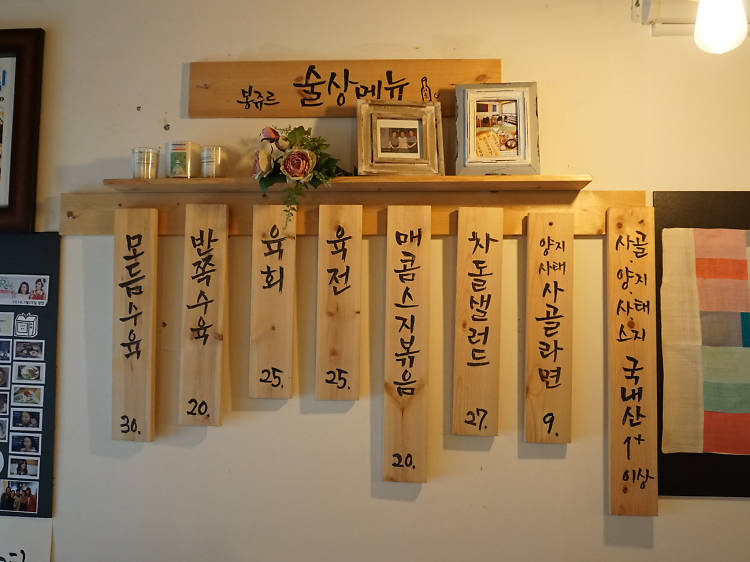 봉쥬르 술상메뉴
모듬수육
30.
반쪽수육
20.
육회
25.
육전
25.
매콤스지볶음
20.
차돌샐러드
27.
양지
사태
사골라면
9.
사골
양지
사태
스지
국내산
1+
이상